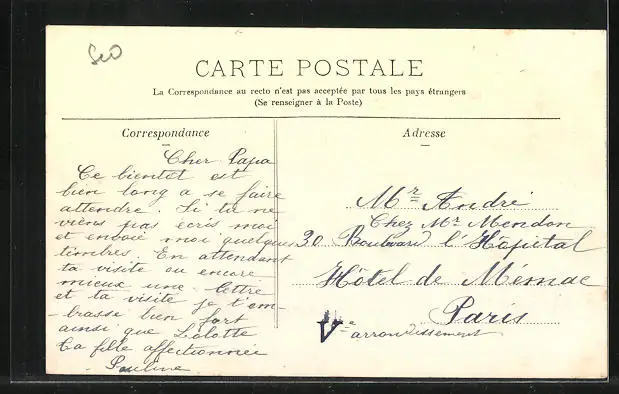 CARTE POSTALE
La Correspondance au recto n'est pas acceptée par tous les pays étrangers
(Se renseigner à la Poste)
Correspondance
Cher Papa
Ce bientot est
bien long a se faire
attendre. Si tu ne
viens pas écris moi
et envoie moi quelques
timbres. En attendant
ta visite ou encore
mieux une lettre
et ta visite je t'em-
-brasse bien fort
ainsi que Lolotte
Ta fille affectionnée
Pauline
Adresse
Mr André
Chez Mr Mendon
30 Boulevard l'Hopital
Hôtel de
Paris
Ve arrondissement